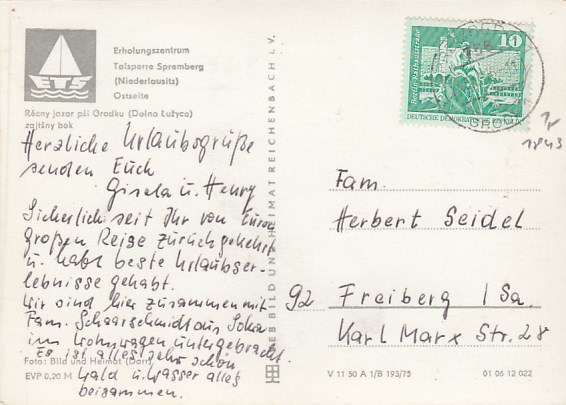 Erholungszentrum
Talsperre Spremberg
(Niederlausitz)
Ostseite
Rěcny jazor pśi Grodku (Dolna Łužyca)
zajtšny bok
Herzliche Urlaubsgrüße
senden Euch
Gisela u. Henry
Sicherlich seit Ihr von Eurer
großen Reise zurückgekehrt
u. habt beste Urlaubser-
lebnisse gehabt.
Wir sind hier zusammen mit
Fam. Schaarschmidt aus
im Wohnwagen untergebracht.
Es ist alles sehr schön
Wald u. Wasser alles
beisammen.
Foto: Bild und Heimat
EVP 0,20 M
VEB BILD UND HEIMAT REICHENBACH I. V.
10
Berlin · Rathausstraße
DEUTSCHE DEMOKRATISCHE
1843
Fam.
Herbert Seidel
92 Freiberg / Sa.
Karl Marx Str. 28
V 11 50 A 1/B 193/75
01 06 12 022